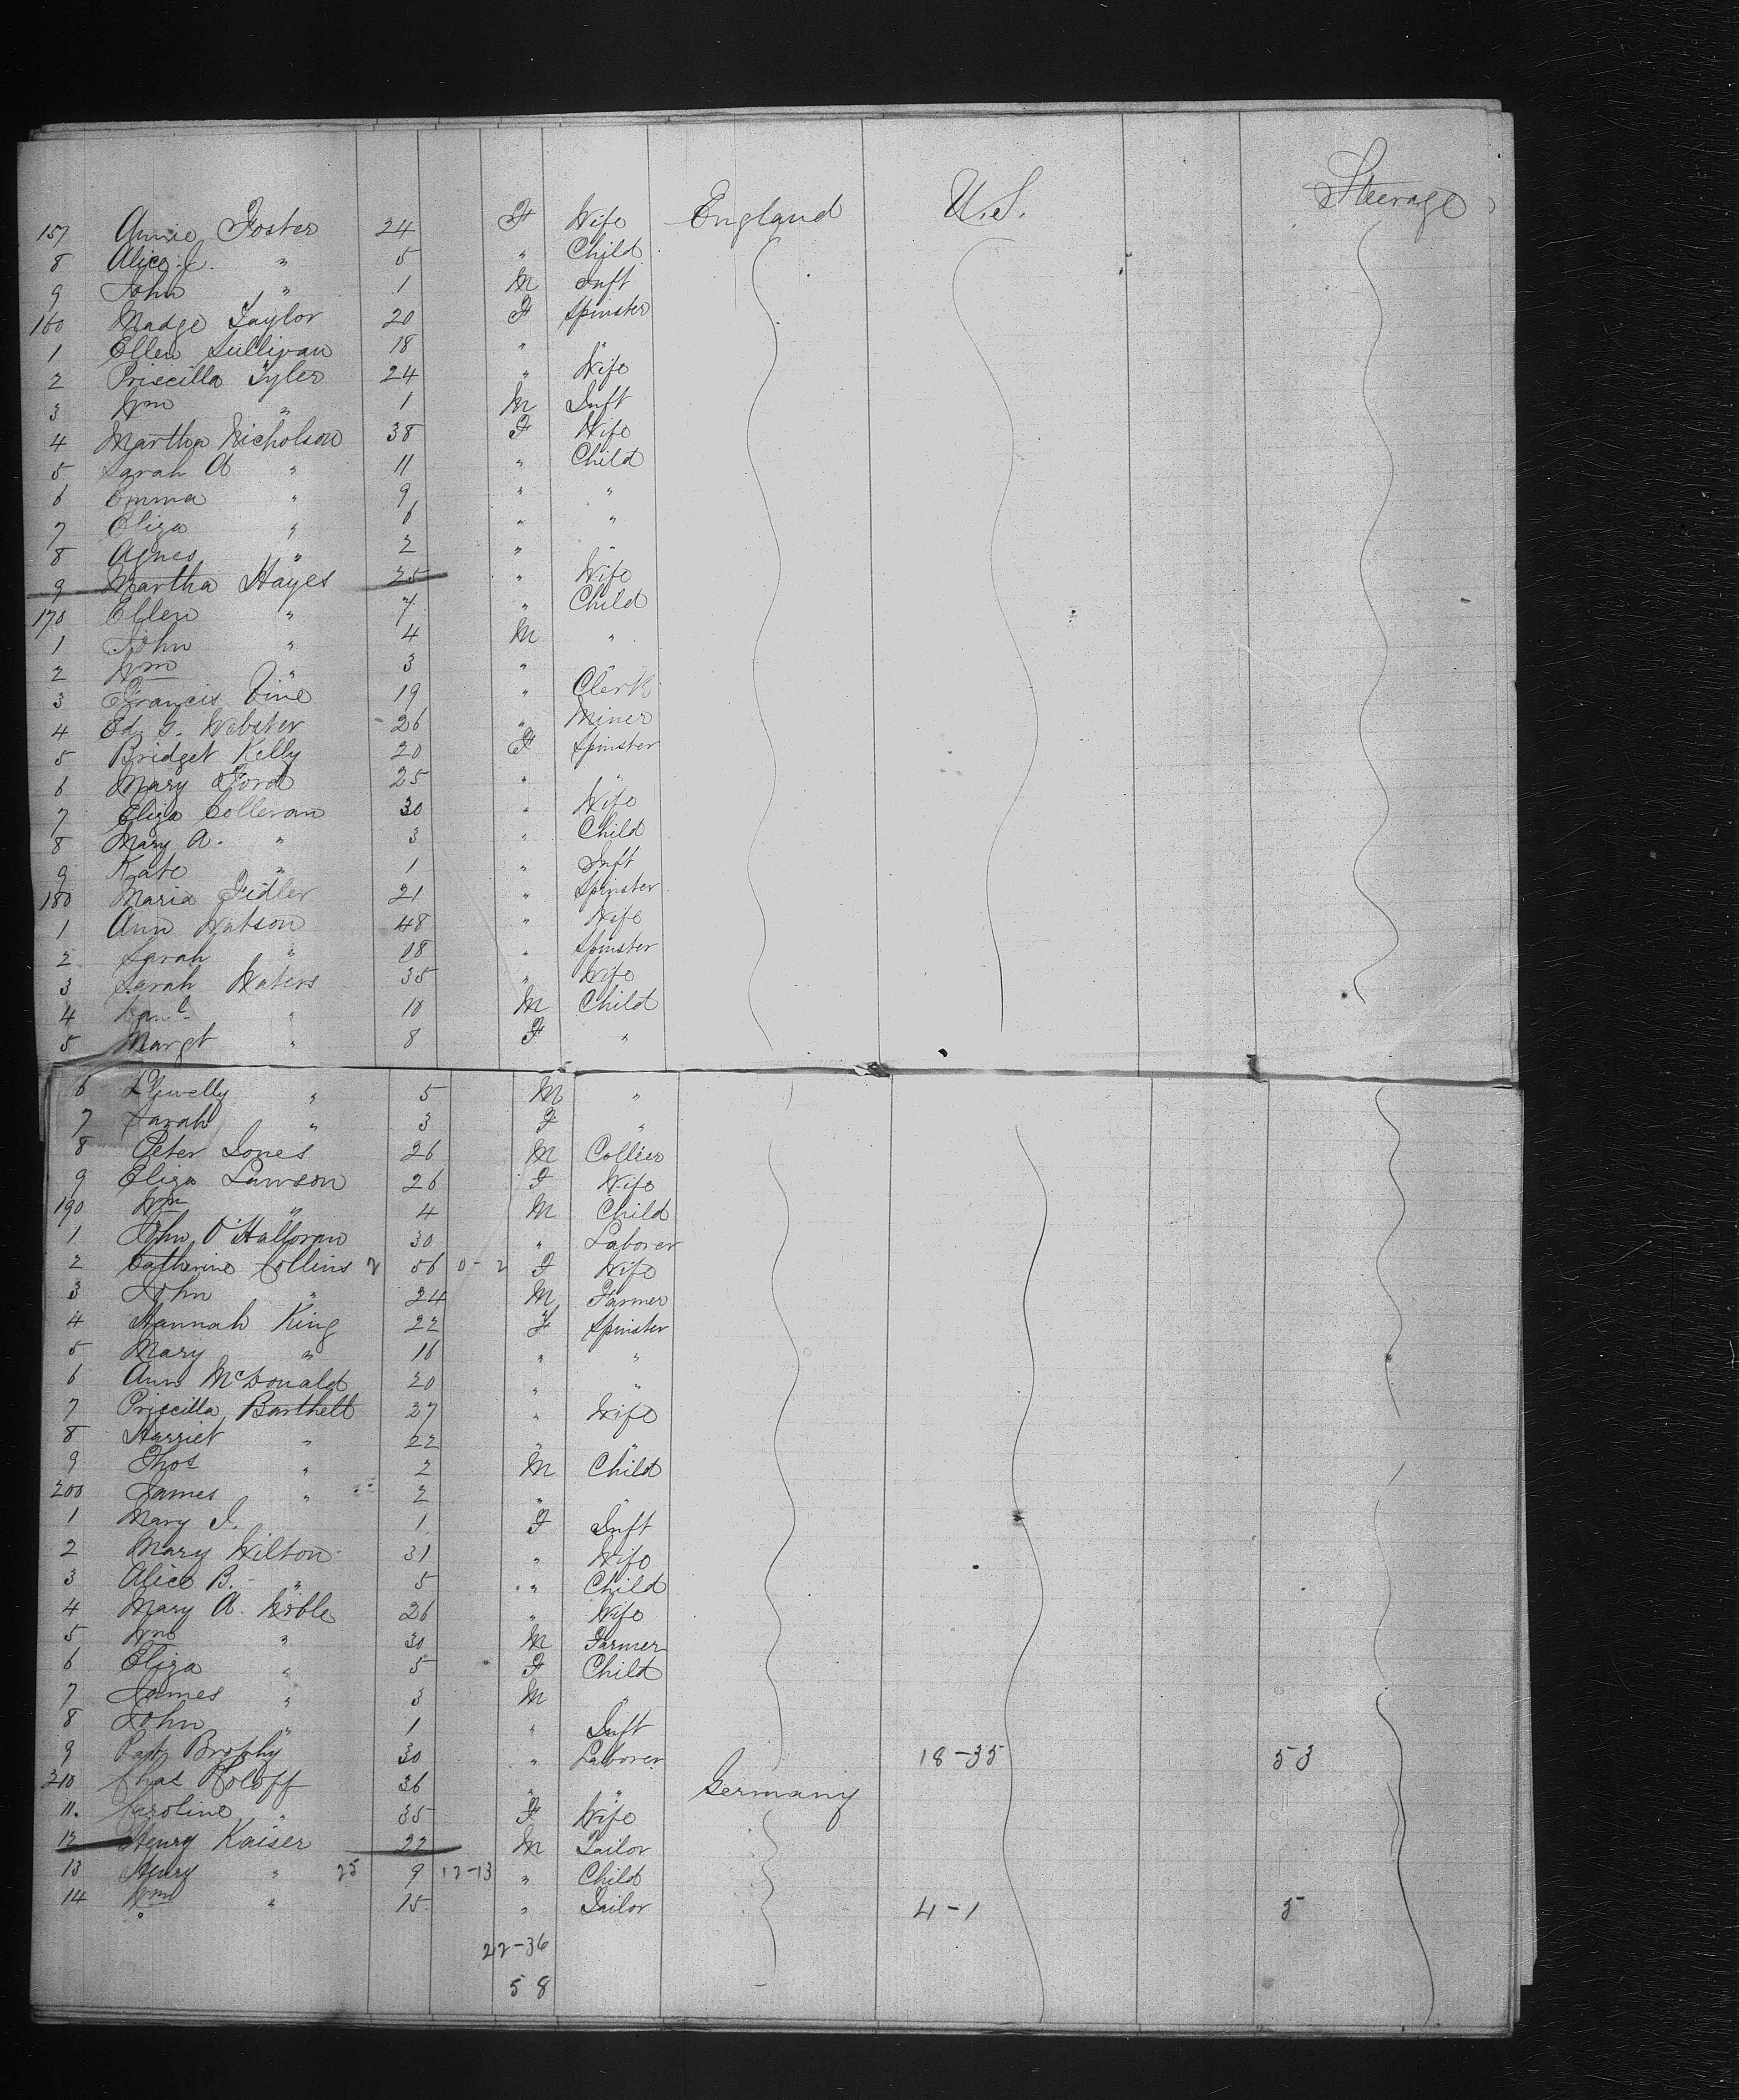 157 Annie Foster 24 F Wife England U.S. Steerage
8 Alice J. " 5 " Child
9 John " 1 M Inft
160 Madge Taylor 20 F Spinster
1 Ellen Sullivan 18 " "
2 Priscilla Tyler 24 " Wife
3 Wm " 1 M Inft
4 Martha Nicholson 38 F Wife
5 Sarah A " 11 " Child
6 Emma " 9 " "
7 Eliza " 6 " "
8 Agnes " 2 " "
9 Martha Hayes 25 " Wife
170 Ellen " 7 " Child
1 John " 4 M "
2 Wm " 3 " "
3 Francis Vine 19 " Clerk
4 Ed. G. Webster 26 " Miner
5 Bridget Kelly 20 F Spinster
6 Mary Ford 25 " "
7 Eliza Colleran 30 " Wife
8 Mary A. " 3 " Child
9 Kate " 1 " Inft
180 Maria Fidler 21 " Spinster
1 Ann Watson 48 " Wife
2 Sarah " 18 " Spinster
3 Sarah Waters 35 " Wife
4 Danl " 10 M Child
5 Margt " 8 F "
6 Llewelly " 5 M "
7 Sarah " 3 F "
8 Peter Jones 26 M Collier
9 Eliza Lawson 26 F Wife
190 Wm " 4 M Child
1 John O'Halloran 30 " Laborer
2 Catherine Collins 2 56 0-2 F Wife
3 John " 24 M Farmer
4 Hannah King 22 F Spinster
5 Mary " 16 " "
6 Ann McDonald 20 " "
7 Priscilla Barthell 27 " Wife
8 Harriet " 22 " "
9 Thos " 2 M Child
200 James " 2 " "
1 Mary J. 1 F Inft
2 Mary Wilton 31 " Wife
3 Alice B. " 5 " Child
4 Mary A. Noble 26 " Wife
5 Wm " 30 M Farmer
6 Eliza " 5 F Child
7 James " 3 M "
8 John " 1 " Inft
9 Pat Brophy 30 " Laborer 18-35 53
210 Chas Roloff 36 " " Germany
11. Caroline " 35 F Wife
12 Henry Kaiser 22 M Tailor
13 Henry " 25 9 12-13 " Child
14 Wm " 15 " Tailor 4-1 5
22-36
58